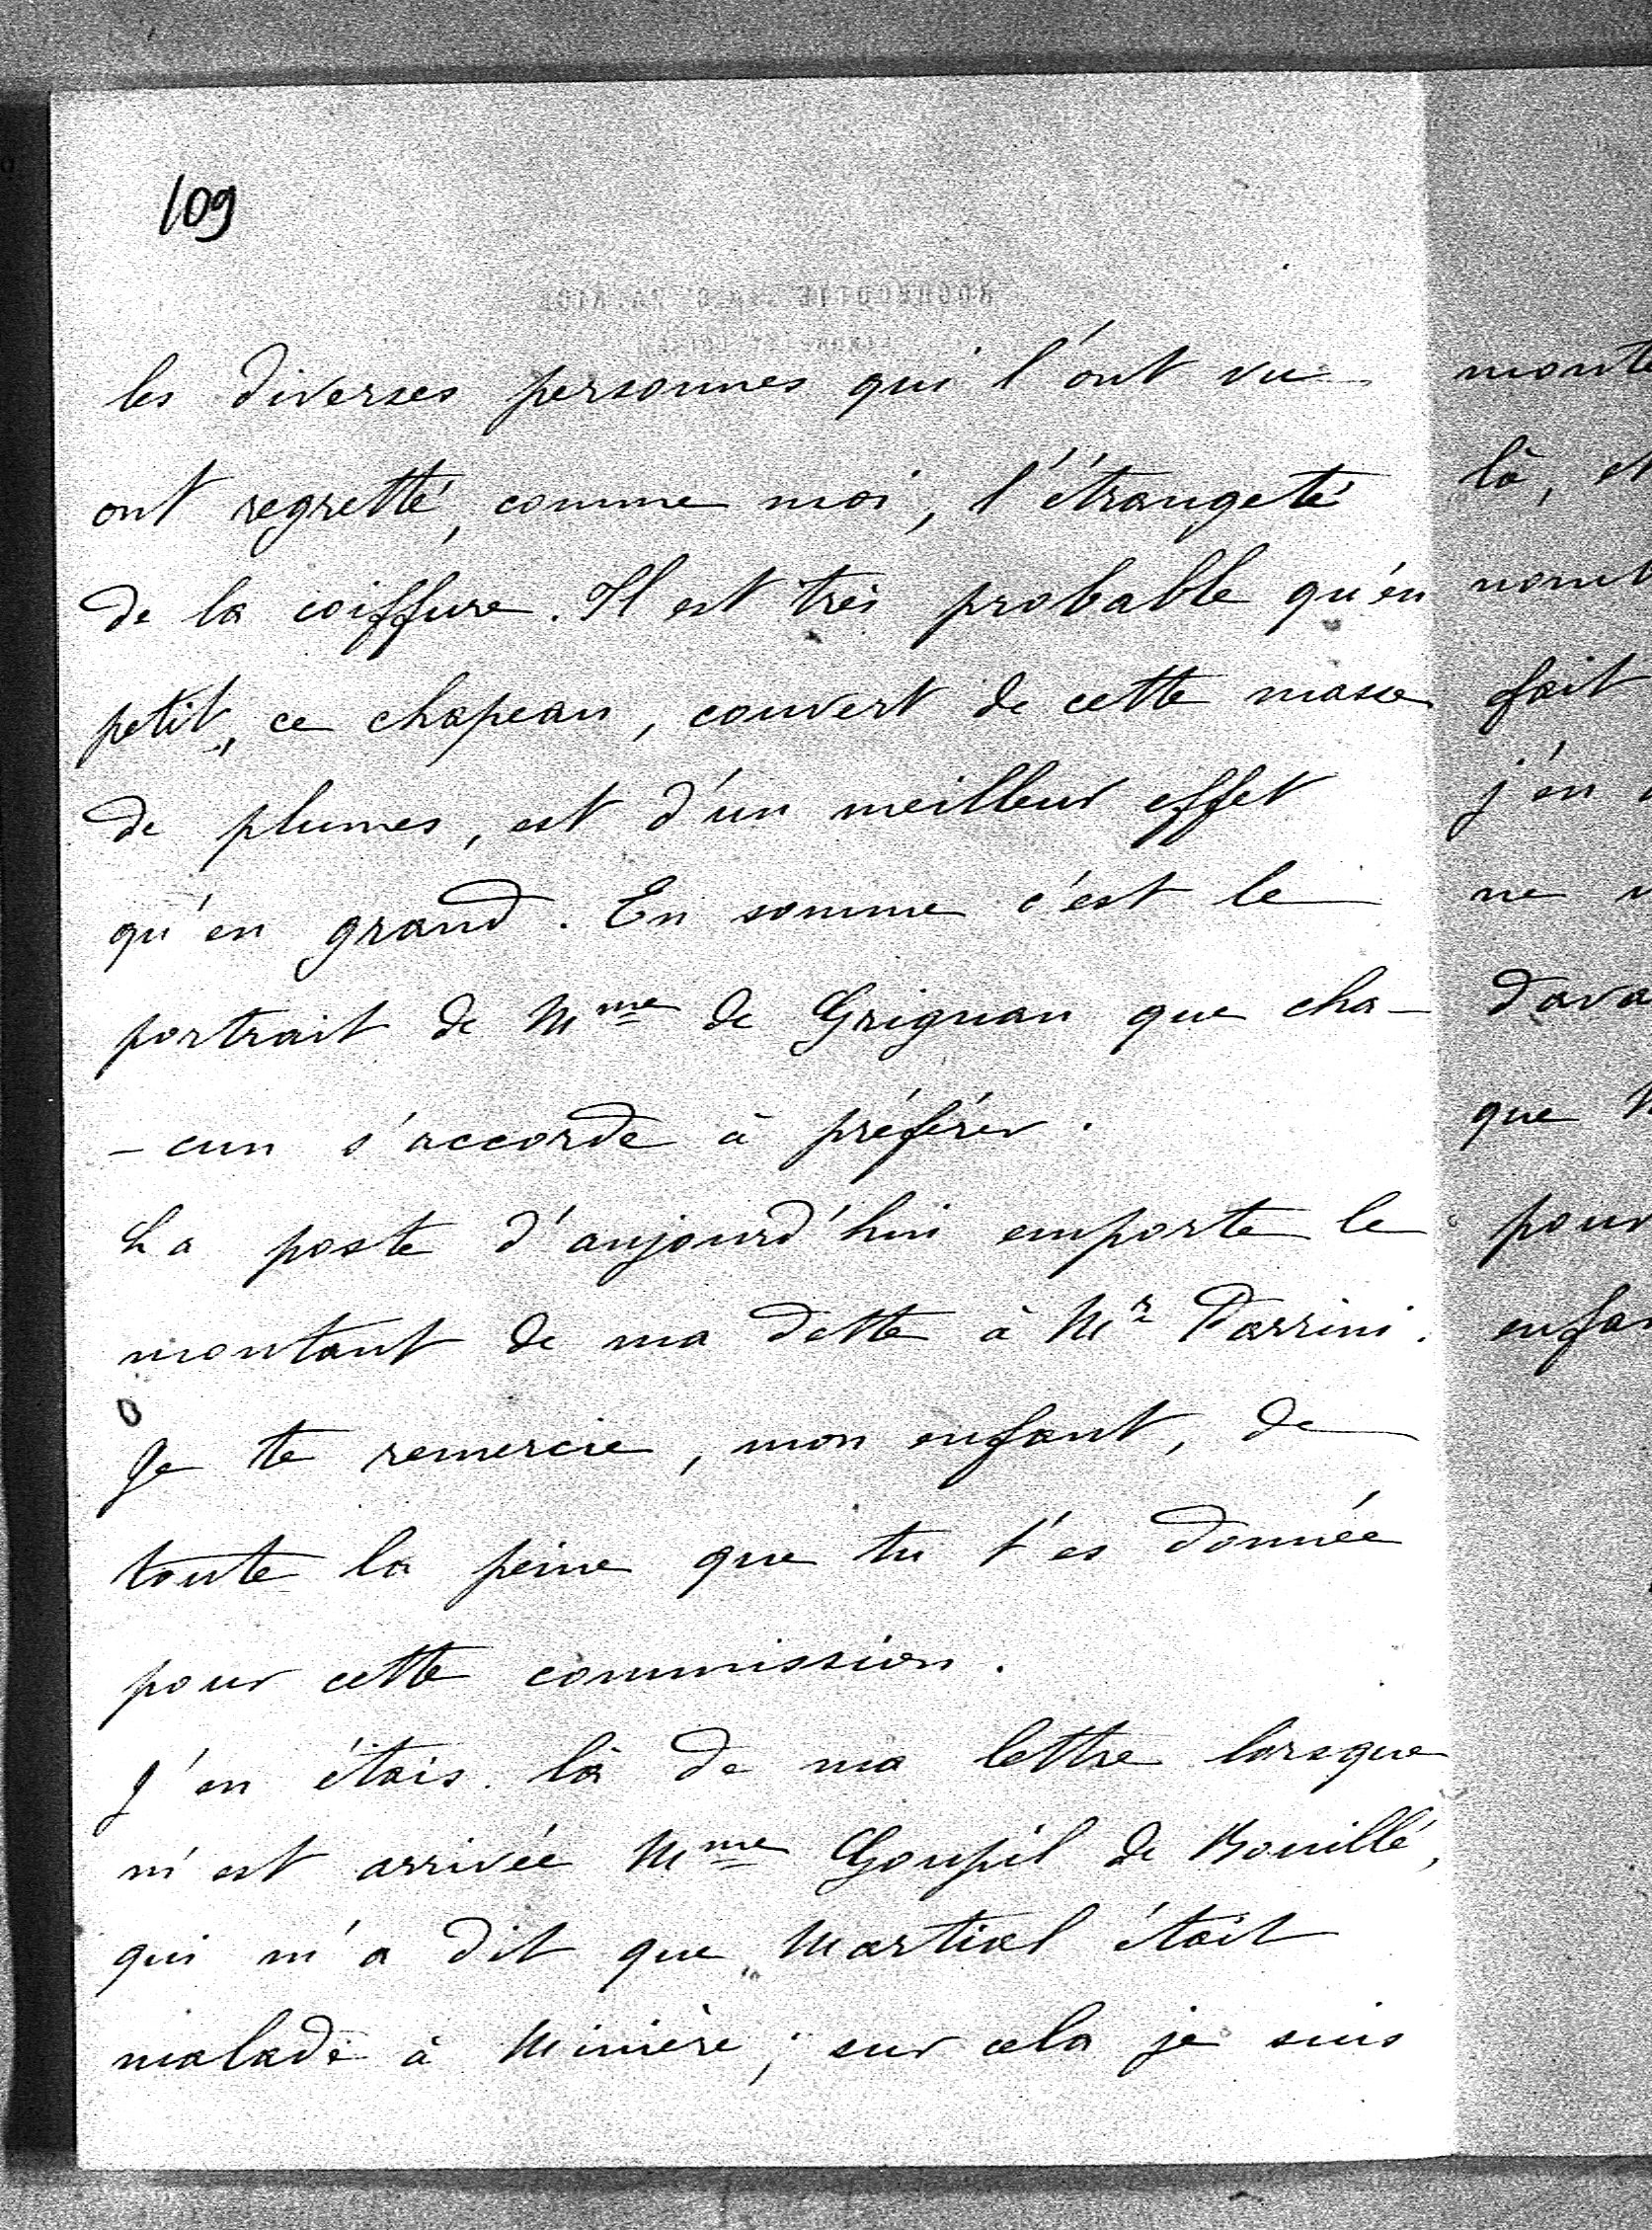 109
les diverses personnes qui l'ont vu
ont regretté, comme moi, l'étrangeté
de la coiffure. Il est très probable qu'en
petit, ce chapeau, couvert de cette masse
de plumes, est d'un meilleur effet
qu'en grand. En somme c'est le
portrait de Mme de Grignan que cha-
-cun s'accorde à préférer.
La poste d'aujourd'hui emporte le
montant de ma dette à Mr Parrini.
Je te remercie, mon enfant, de
toute la peine que tu t'es donnée
pour cette commission.
J'en étais là de ma lettre lorsque
m'est arrivée Mme Goupil de Bouillé,
qui m'a dit que Martial était
malade à Minière; sur cela je suis
là, et
fait
j'en
ne
que
pour